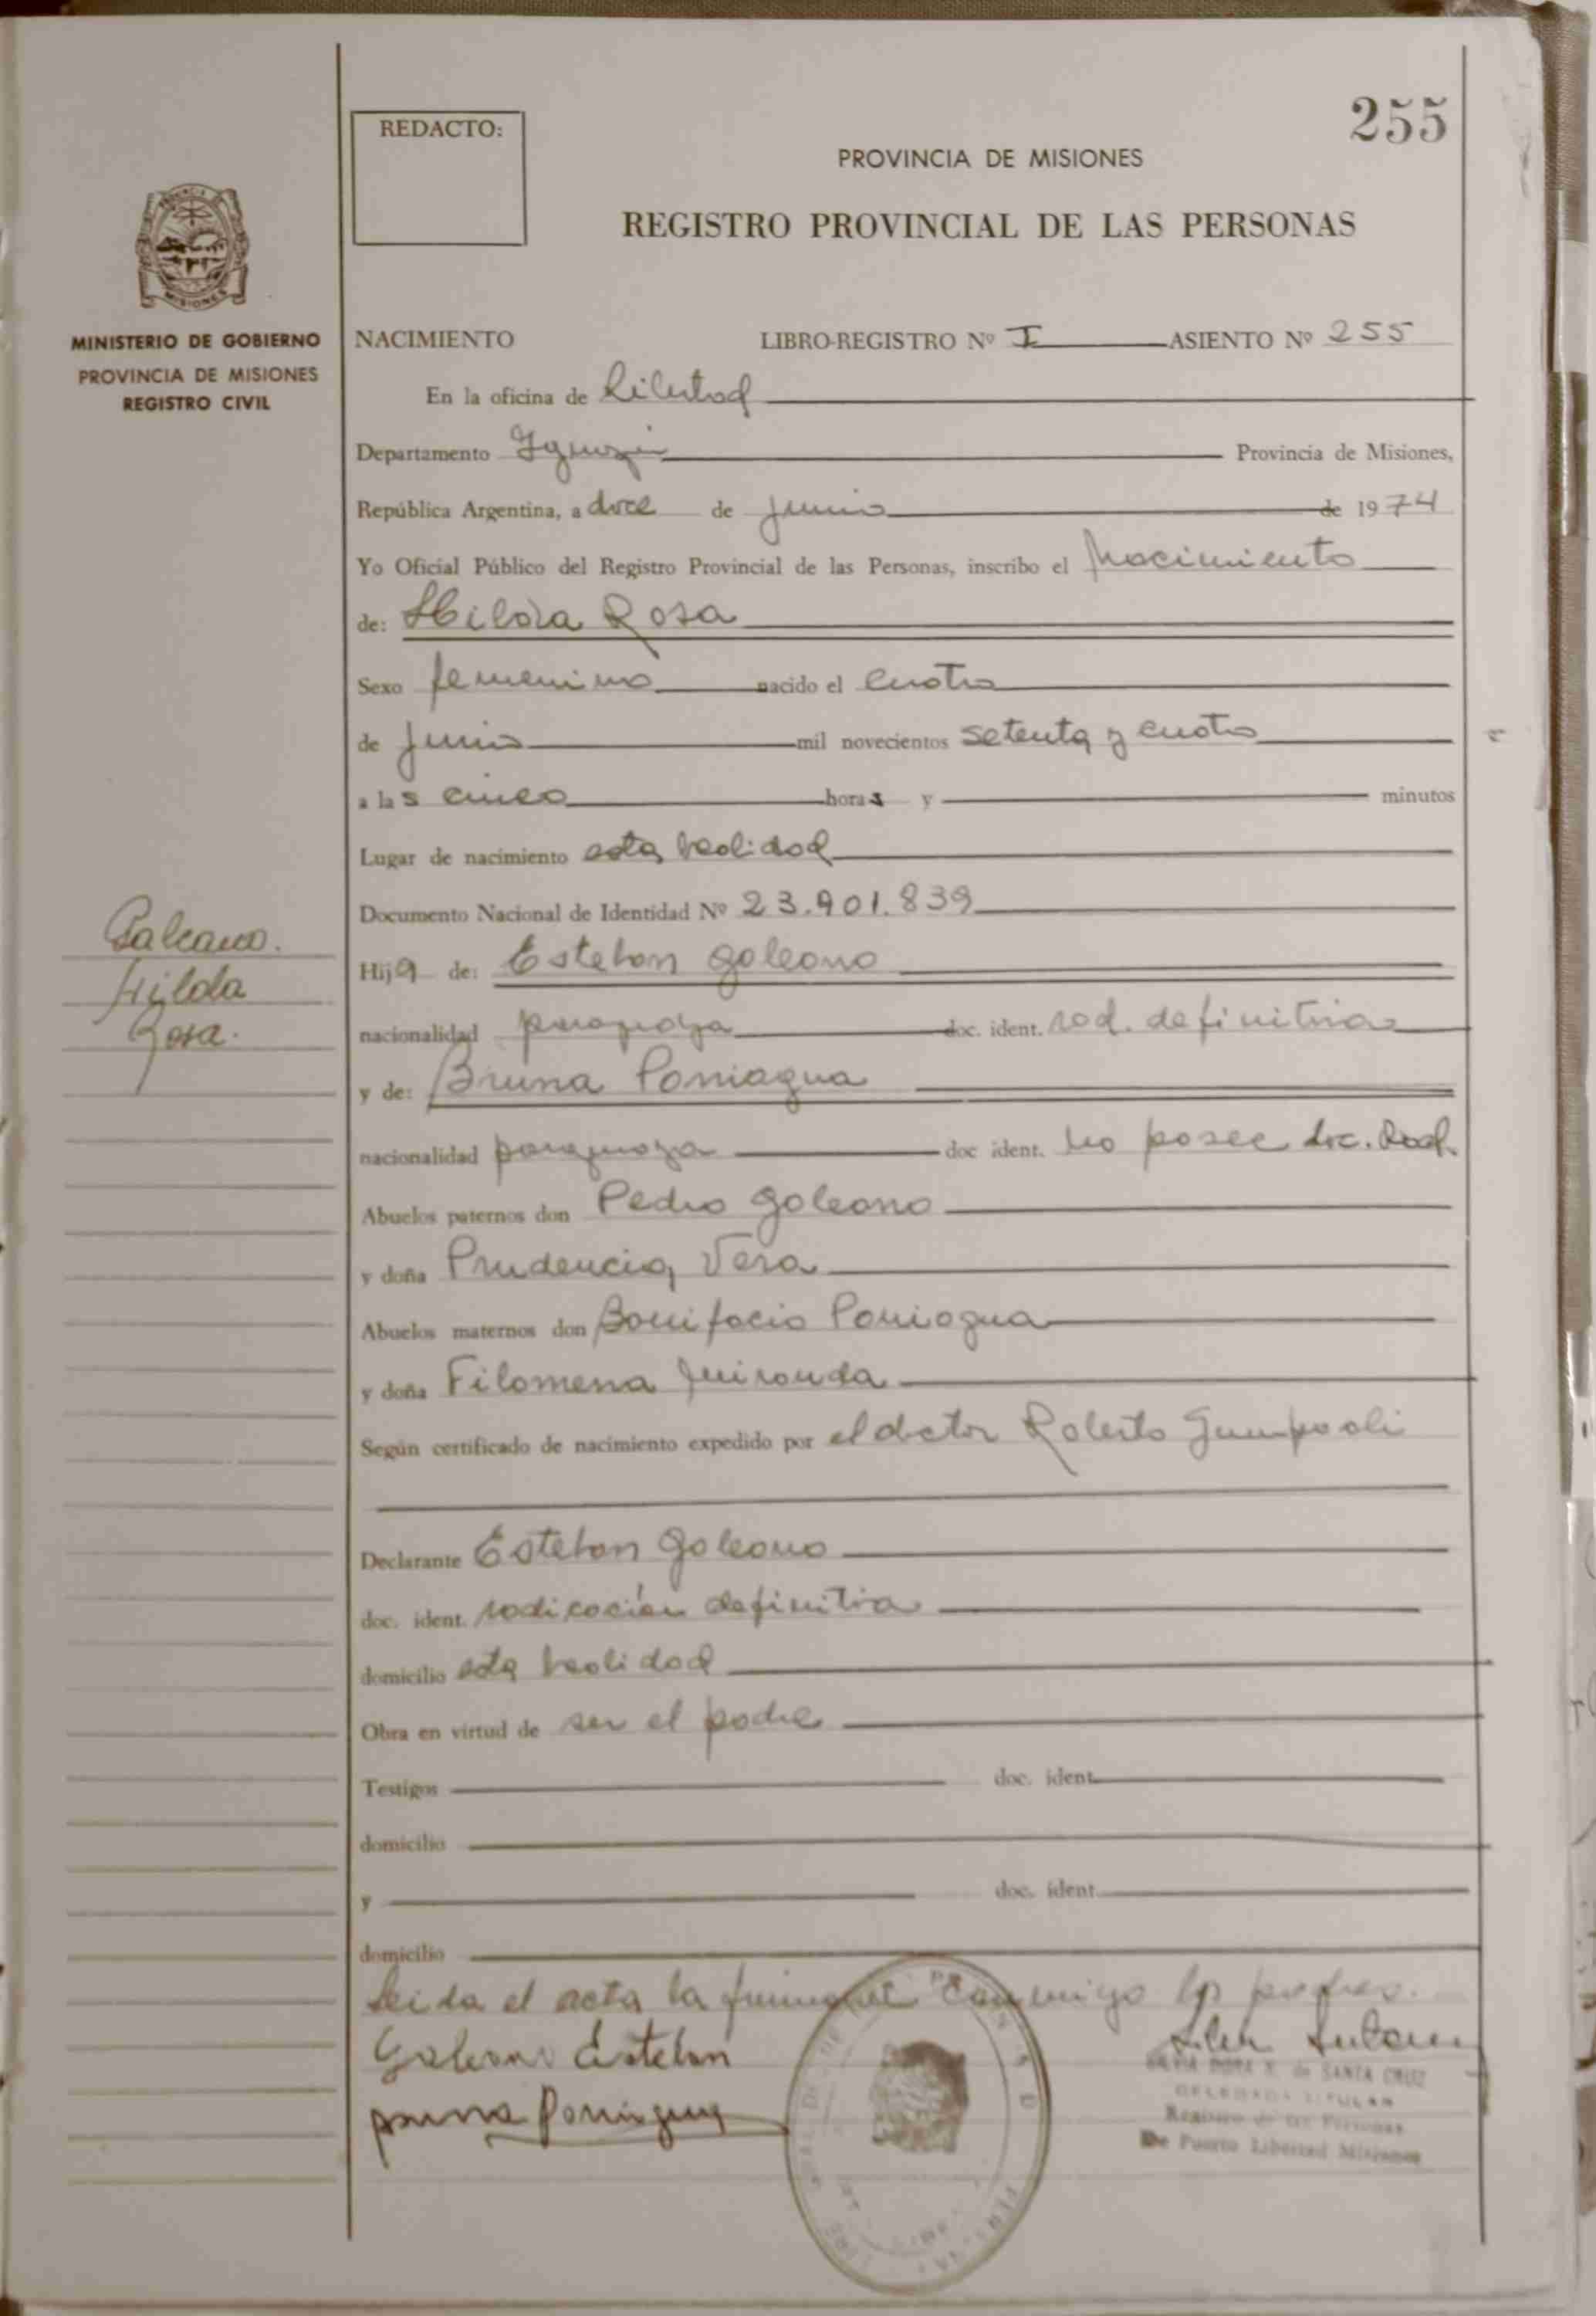 255
REDACTO:
PROVINCIA DE MISIONES
REGISTRO PROVINCIAL DE LAS PERSONAS
MISIONES
MINISTERIO DE GOBIERNO
PROVINCIA DE MISIONES
REGISTRO CIVIL
NACIMIENTO LIBRO-REGISTRO Nº I ASIENTO Nº 255
En la oficina de Libertad
Departamento Iguazú Provincia de Misiones,
República Argentina, a doce de junio de 1974
Yo Oficial Público del Registro Provincial de las Personas, inscribo el Nacimiento
de: Hilda Rosa
Sexo femenino nacido el cuatro
de junio mil novecientos setenta y cuatro
a las cinco horas y minutos
Lugar de nacimiento esta localidad
Documento Nacional de Identidad Nº 23.901.839
Galeano.
Hilda
Rosa.
Hija de: Esteban Galeano
nacionalidad paraguaya doc. ident. rad. definitiva
y de: Bruna Paniagua
nacionalidad paraguaya doc ident. no posee doc. Rad.
Abuelos paternos don Pedro Galeano
y doña Prudencia Vera
Abuelos maternos don Bonifacio Paniagua
y doña Filomena Miranda
Según certificado de nacimiento expedido por el doctor Roberto
Declarante Esteban Galeano
doc. ident. radicación definitiva
domicilio esta localidad
Obra en virtud de ser el padre
Testigos doc. ident.
domicilio
y doc. ident.
domicilio
Leida el acta la firman conmigo los padres.
Galeano Esteban
Paniagua
de SANTA CRUZ
DELEGADA TITULAR
Registro de las Personas
De Puerto Libertad Misiones